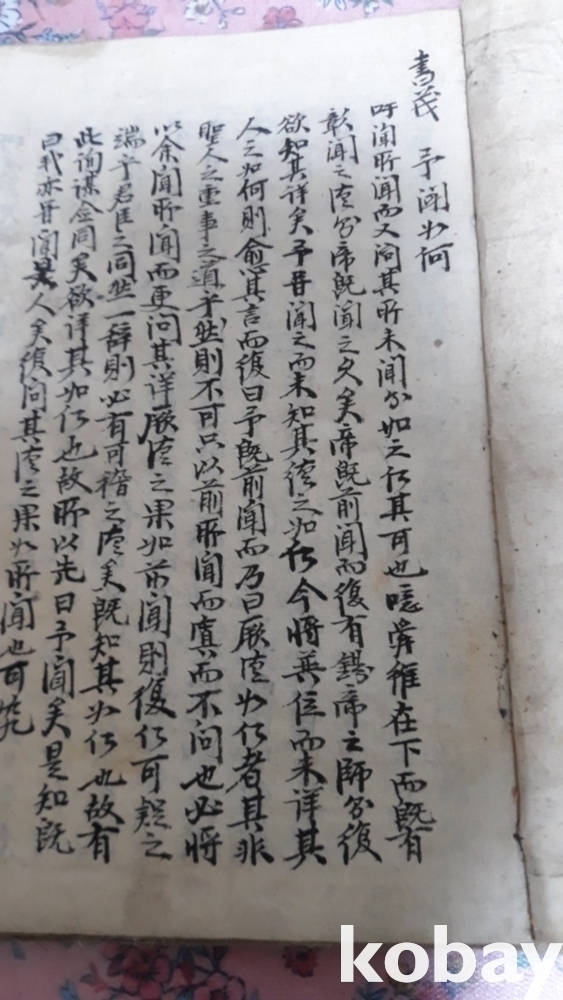 書義 予聞如何
吁聞所聞而又問其所未聞分如之何其可也噫舜雖在下而旣有
彰聞之德分帝旣聞之久矣帝旣前聞而復有錫帝之師分復
欲知其詳矣予昔聞之而未知其德之如何今將巽位而未詳其
人之如何則兪其言而復曰予旣前聞而乃曰厥德如何者其非
聖人之重事之道乎然則不可只以前所聞而實而不問也必將
以余聞所聞而更問其詳厥德之果如前聞則復何可疑之
端乎君臣之同然一辭則必有可稽之德矣旣知其如何也故有
此詢謀僉同矣欲詳其如何也故所以先曰予聞矣是知旣
曰我亦昔聞是人矣復問其德之果如所聞也可
kobay